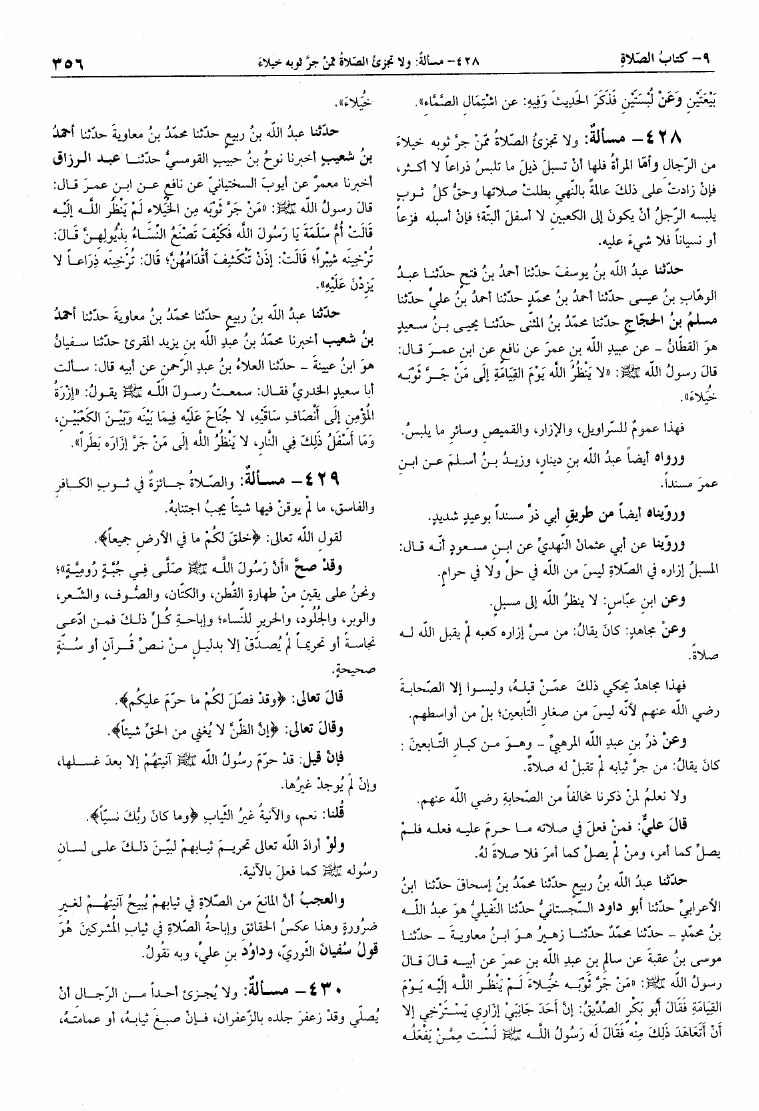 ٩- كتابُ الصّلاةِ
٤٢٨- مسألةٌ: ولا تجزئُ الصّلاةُ ممّنْ جرَّ ثوبه خيلاءَ
٣٥٦
بَيْعَتَيْنِ وَعَنْ لُبْسَتَيْنِ فَذَكَرَ الحَدِيثَ وَفِيهِ: عن اشْتِمَالِ الصَّمَّاءِ».
٤٢٨- مسألةٌ: ولا تجزئُ الصّلاةُ ممّنْ جرَّ ثوبه خيلاءَ
من الرّجالِ وأمّا المرأةُ فلها أنْ تسبلَ ذيلَ ما تلبسُ ذراعاً لا أكثر،
فإنْ زادتْ على ذلكَ عالمةً بالنّهيِ بطلتْ صلاتها وحقُّ كلِّ ثوبٍ
يلبسه الرّجلُ أنْ يكونَ إلى الكعبينِ لا أسفلَ ألبتّةَ؛ فإنْ أسبله فزعاً
أو نسياناً فلا شيءَ عليه.
حدّثنا عبدُ اللّه بنُ يوسفَ حدّثنا أحمدُ بنُ فتحٍ حدّثنا عبدُ
الوهّابِ بنُ عيسى حدّثنا أحمدُ بنُ محمّدٍ حدّثنا أحمدُ بنُ عليٍّ حدّثنا
مسلمُ بنُ الحجّاجِ حدّثنا محمّدُ بنُ المثنّى حدّثنا يحيى بنُ سعيدٍ
هوَ القطّانُ - عن عبيدِ اللّه بنِ عمرَ عن نافعٍ عن ابنِ عمرَ قال:
قالَ رسولُ اللّه ﷺ: «لا يَنْظُرُ اللَّه يَوْمَ القِيَامَةِ إلَى مَنْ جَرَّ ثَوْبَه
خُيَلاءَ».
فهذا عمومٌ للسّراويلِ، والإزارِ، والقميصِ وسائرِ ما يلبسُ.
ورواه أيضاً عبدُ اللّه بنِ دينارٍ، وزيدُ بنُ أسلمَ عن ابنِ
عمرَ مسنداً.
وروّيناه أيضاً من طريقِ أبي ذرٍّ مسنداً بوعيدٍ شديدٍ.
وروّينا عن أبي عثمانَ النّهديِّ عن ابنِ مسعودٍ أنّه قال:
المسبلُ إزاره في الصّلاةِ ليسَ من اللّه في حلٍّ ولا في حرامٍ.
وعن ابنِ عبّاسٍ: لا ينظرُ اللّه إلى مسبلٍ.
وعنْ مجاهدٍ: كانَ يقالُ: من مسَّ إزاره كعبه لم يقبل اللّه له
صلاةً.
فهذا مجاهدٌ يحكي ذلكَ عمّنْ قبله، وليسوا إلا الصّحابةَ
رضي اللّه عنهم لأنّه ليسَ من صغارِ التّابعين؛ بلْ من أواسطهم.
وعنْ ذرِّ بنِ عبدِ اللّه المرهبيِّ - وهوَ من كبارِ التّابعينَ :
كانَ يقالُ: من جرَّ ثيابه لم تقبلْ له صلاةٌ.
ولا نعلمُ لمنْ ذكرنا مخالفاً من الصّحابةِ رضي اللّه عنهم.
قالَ عليٌّ: فمنْ فعلَ في صلاته ما حرمَ عليه فعله فلمْ
يصلِّ كما أمر، ومنْ لمْ يصلِّ كما أمرَ فلا صلاةَ لهُ.
حدّثنا عبدُ اللّه بنُ ربيعٍ حدّثنا محمّدُ بنُ إسحاقَ حدّثنا ابنُ
الأعرابيِّ حدّثنا أبو داود السّجستانيُّ حدّثنا النّفيليُّ هوَ عبدُ اللّه
بنُ محمّدٍ - حدّثنا محمّدٌ حدّثنا زهيرٌ هوَ ابنُ معاويةَ - حدّثنا
موسى بنُ عقبةَ عن سالمِ بنِ عبدِ اللّه بنِ عمرَ عن أبيه قالَ قالَ
رسولُ اللّه ﷺ: «مَنْ جَرَّ ثَوْبَه خُيَلاءَ لَمْ يَنْظُرِ اللَّه إلَيْه يَوْمَ
القِيَامَةِ فَقَالَ أَبُو بَكْرٍ الصِّدِّيقُ: إنَّ أَحَدَ جَانِبَيْ إزَارِي يَسْتَرْخِي إلا
أَنْ أَتَعَاهَدَ ذَلِكَ مِنْه فَقَالَ لَه رَسُولُ اللَّه ﷺ لَسْت مِمَّنْ يَفْعَلُه
خُيَلاءَ».
حدّثنا عبدُ اللّه بنُ ربيعٍ حدّثنا محمّدُ بنُ معاويةَ حدّثنا أحمدُ
بنُ شعيبٍ أخبرنا نوحُ بنُ حبيبٍ القومسيُّ حدّثنا عبدُ الرزاقِ
أخبرنا معمرٌ عن أيوبَ السختيانيِّ عن نافعٍ عن ابنِ عمرَ قال:
قالَ رسولُ اللّه ﷺ: «مَنْ جَرَّ ثَوْبَه مِن الخُيَلاءِ لَمْ يَنْظُرِ اللَّه إلَيْه
قَالَتْ أُمُّ سَلَمَةَ يَا رَسُولَ اللَّه فَكَيْفَ تَصْنَعُ النِّسَاءُ بِذُيُولِهِنَّ قَالَ:
تُرْخِينَه شِبْراً؛ قالَتْ: إذَنْ تَنْكَشِفَ أَقْدَامُهُنَّ؛ قَالَ: تُرْخِينَه ذِرَاعاً لا
يَزِدْنَ عَلَيْهِ».
حدّثنا عبدُ اللّه بنُ ربيعٍ حدّثنا محمّدُ بنُ معاويةَ حدّثنا أحمدُ
بنُ شعيبٍ أخبرنا محمّدُ بنُ عبدِ اللّه بنِ يزيد المقرئ حدّثنا سفيانُ
هوَ ابنُ عيينةَ - حدّثنا العلاءُ بنُ عبدِ الرّحمنِ عن أبيه قال: سألت
أبا سعيدٍ الخدريِّ فقال: سمعتُ رسولَ اللّه ﷺ يقولُ: «إزْرَةُ
المُؤْمِنِ إلَى أَنْصَافِ سَاقَيْهِ، لا جُنَاحَ عَلَيْه فِيمَا بَيْنَه وَبَيْنَ الكَعْبَيْنِ،
وَمَا أَسْفَلُ ذَلِكَ فِي النَّارِ، لا يَنْظُرُ اللَّه إلَى مَنْ جَرَّ إزَارَه بَطَراً».
٤٢٩- مسألةٌ: والصّلاةُ جائزةٌ في ثوبِ الكافرِ
والفاسق، ما لمْ يوقنْ فيها شيئاً يجبُ اجتنابهُ.
لقولِ اللّه تعالى: ﴿خلقَ لكمْ ما في الأرضِ جميعاً﴾.
وقدْ صحَّ «أَنَّ رَسُولَ اللَّه ﷺ صَلَّى فِي جُبَّةٍ رُومِيَّةٍ»؛
ونحنُ على يقينٍ منْ طهارةِ القُطنِ، والكتّان، والصُّوف، والشّعر،
والوبر، والجُلُود، والحريرِ للنّساء؛ وإباحةِ كُلِّ ذلكَ فمن ادّعى
نجاسةً أو تحريماً لمْ يُصدّقْ إلا بدليلٍ منْ نصِّ قُرآنٍ أو سُنّةٍ
صحيحةٍ.
قالَ تعالى: ﴿وقدْ فصّلَ لكمْ ما حرّمَ عليكم﴾.
وقالَ تعالى: ﴿إنَّ الظّنَّ لا يُغني من الحقِّ شيئاً﴾.
فإنْ قيل: قدْ حرّمَ رسُولُ اللّه ﷺ آنيتهُمْ إلا بعدَ غسلها،
وإنْ لَم يُوجدْ غيرُها.
قُلنا: نعم، والآنيةُ غيرُ الثّيابِ ﴿وما كانَ ربُّكَ نسيّاً﴾.
ولوْ أرادَ اللّه تعالى تحريمَ ثيابهمْ لبيّنَ ذلكَ على لسانِ
رسُوله ﷺ كما فعلَ بالآنية.
والعجبُ أنَّ المانعَ من الصّلاةِ في ثيابهمْ يُبيحُ آنيتهُمْ لغيرِ
ضرُورةٍ وهذا عكسُ الحقائقِ وإباحةُ الصّلاةِ في ثيابِ المُشركينَ هُوَ
قولُ سُفيانَ الثّوريّ، وداوُدَ بنِ عليٍّ، وبه نقُولُ.
٤٣٠- مسألةٌ: ولا يُجزئ أحداً من الرّجالِ أنْ
يُصلّي وقدْ زعفرَ جلده بالزّعفران، فإنْ صبغَ ثيابهُ، أو عمامتهُ،